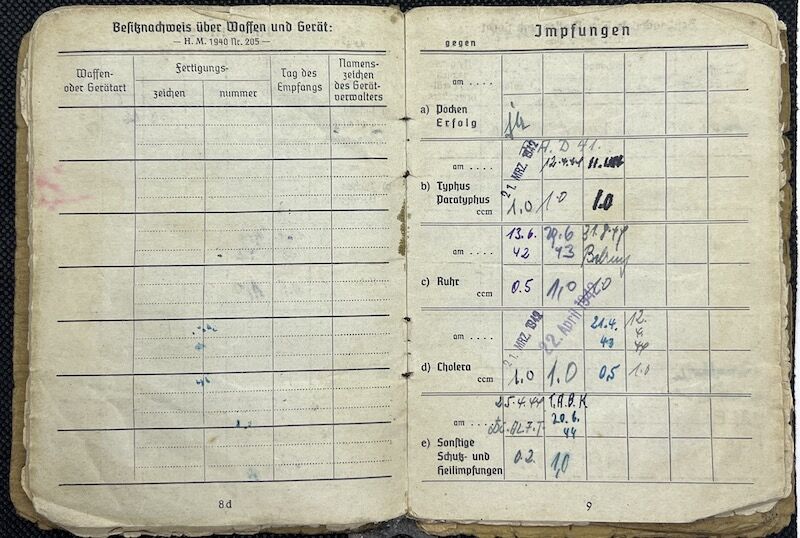 Besitznachweis über Waffen und Gerät:
— H. M. 1940 Nr. 205 —
Waffen-
oder Gerätart
Fertigungs-
zeichen
nummer
Tag des
Empfangs
Namens-
zeichen
des Gerät-
verwalters
8d
Impfungen
gegen
am . . . .
a) Pocken
Erfolg
ja
21. MRZ. 1942
12.4.44
am . . . .
b) Typhus
Paratyphus
ccm
1.0
1.0
1.0
13.6.
42
29.6
43
31.8.44
am . . . .
c) Ruhr
ccm
0.5
1,0
1.0
21. MRZ. 1942
22. April 1942
21.4.
43
12.
4.
44
am . . . .
d) Cholera
ccm
1.0
1.0
0,5
1.0
25.4.44
T.A.B.K
am . . . .
20.6.
44
e) Sonstige
Schutz- und
Heilimpfungen
0.2
1,0
9